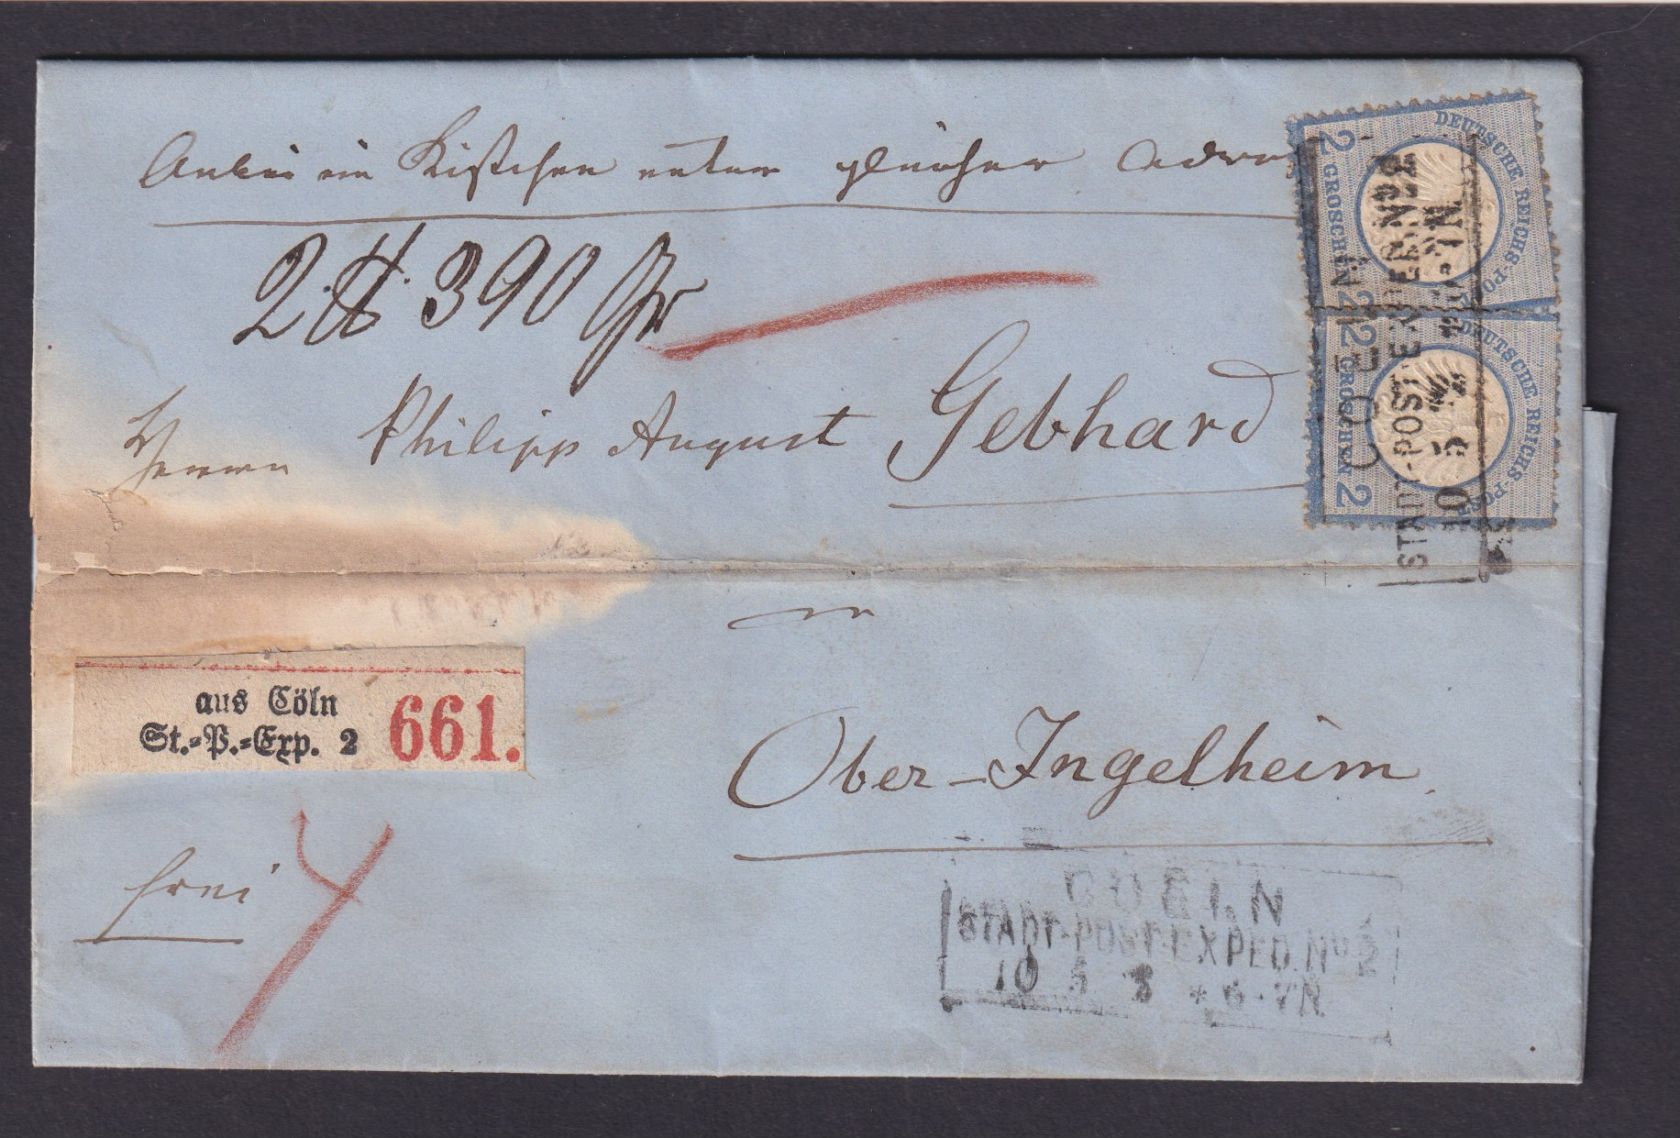 Anbei ein Kistchen unter gleicher Adres
2 ℔ 390 Gr
Herrn Philipp August Gebhard
in
Ober-Ingelheim
frei
4
aus Cöln
St.-P.-Exp. 2
661.
DEUTSCHE REICHS-POST
2 GROSCHEN 2
DEUTSCHE REICHS-POST
2 GROSCHEN 2
COELN
STADT-POST-EXPED. No 2
10 5
COELN
STADT-POST-EXPED. No 2
10 5 3 * 6-7N